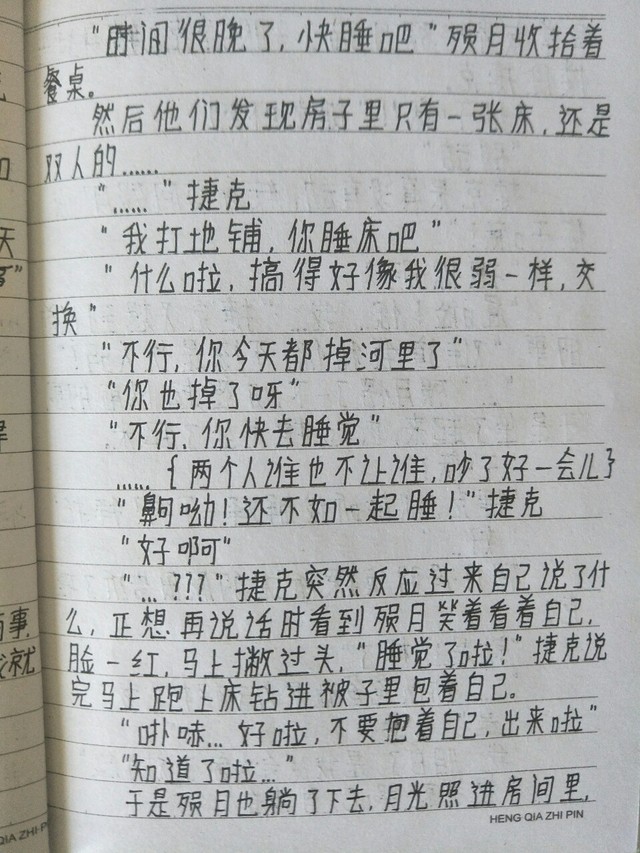 “时间很晚了，快睡吧”殒月收拾着
餐桌。
然后他们发现房子里只有一张床，还是
双人的……
“……”捷克
“我打地铺，你睡床吧”
“什么啦，搞得好像我很弱一样，交
换”
“不行，你今天都掉河里了”
“你也掉了呀”
“不行，你快去睡觉”
……｛两个人谁也不让谁，吵了好一会儿｝
“齁呦！还不如一起睡！”捷克
“好啊”
“…???”捷克突然反应过来自己说了什
么，正想再说话时看到殒月笑着看着自己，
脸一红，马上撇过头，“睡觉了啦！”捷克说
完马上跑上床钻进被子里包着自己。
“噗哧…好啦，不要抱着自己，出来啦”
“知道了啦…”
于是殒月也躺了下去，月光照进房间里，
HENG QIA ZHI PIN
天
事
就
QIA ZHI PIN